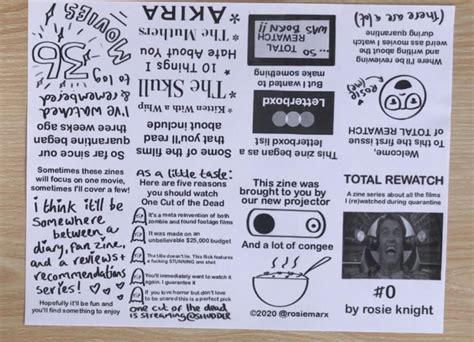 TOTAL REWATCH
A zine series about all the films
I (re)watched during quarantine
#0
by rosie knight
Welcome,
To this the first issue
of TOTAL REWATCH
rosie
(me)
Where I'll be reviewing
and writing about the
weird ass movies I watch
during quarantine
(there are a lot)
This zine began as a
letterboxd list
Letterboxd
But I wanted to
make something
SO...
TOTAL
REWATCH
WAS BORN!!
Some of the films
that you'll read
about include
* Kitten With a whip
* The Skull
* 10 Things I
Hate About You
* The Muthers
* AKIRA
So far since our
quarantine began
three weeks ago
I've watched
& remembered
to log
36
MOVIES
Sometimes these zines
will focus on one movie,
sometimes I'll cover a few!
i think it'll be
somewhere
between a
diary, fan zine,
and a reviews +
recommendations
series!
Hopefully it'll be fun and
you'll find something to enjoy
as a little taste:
Here are five reasons
you should watch
One Cut of the Dead
It's a meta reinvention of both
zombie and found footage films
It was made on an
unbelievable $25,000 budget
The title doesn't lie. This flick features
a fucking STUNNING one shot
You'll immediately want to watch it
again. I guarantee it
If you love horror but don't love
to be scared this is a perfect pick
one cut of the dead
is streaming @SHUDDER
This zine was
brought to you by
our new projector
And a lot of congee
©2020 @rosiemarx